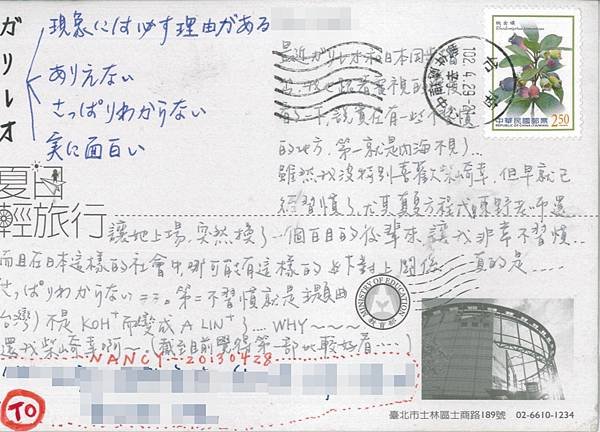 ガリレオ
現象には必ず理由がある
ありえない
さっぱりわからない
実に面白い
最近ガリレオ
的地方. 第一就是內海不見了...
雖然我沒特別喜歡柴崎幸. 但早就已
經習慣了. 尤其真夏方程式東野老師還
讓她上場. 突然換了一個白目的後輩來. 讓我非常不習慣..
而且在日本這樣的社會中. 哪可能有這樣的 對上關係 真的是....
さっぱりわからない 第二不習慣就是主題曲
台灣) 不是 KOH⁺ 而變成 A LIN⁺ 了.... WHY~~~~
還我柴崎幸啊~ (看到目前覺得第一部比較好看....)
NANCY-20130428
TO
夏日
輕旅行
102.4.29
桃金孃
中華民國郵票
REPUBLIC OF CHINA (TAIWAN)
2.50
MINISTRY OF EDUCATION
教育部
臺北市士林區士商路189號 02-6610-1234